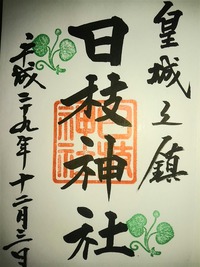 皇城之鎮
日枝神社
平成二十九年十二月三日